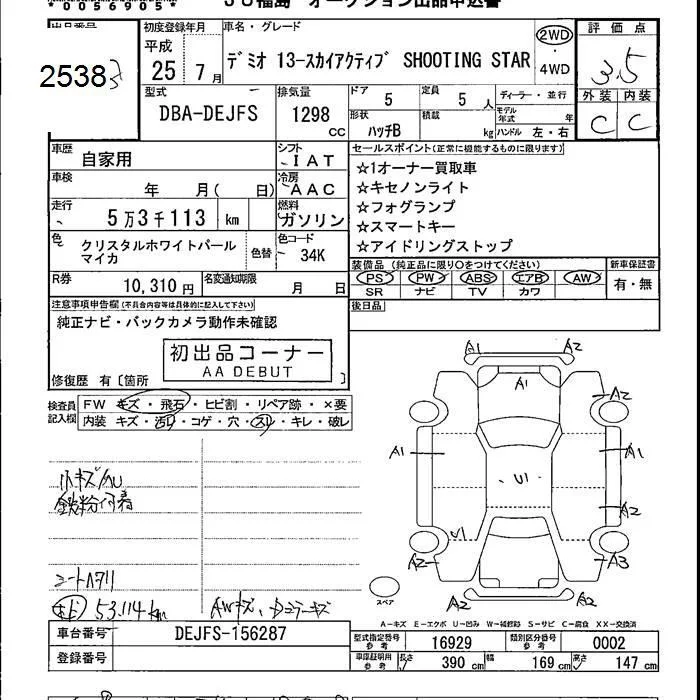 * 0 5 6 9 0 5 *
JU福島 オークション出品申込書
出品番号
25383
初度登録年月
平成
25年 7月
車名・グレード
デミオ 13-スカイアクティブ SHOOTING STAR
2WD
・
4WD
評価点
3.5
外装 内装
C C
型式
DBA-DEJFS
排気量
1298
CC
ドア
5
定員
5 人
ディーラー・並行
モデル年式 年
形状
ハッチB
積載
kg
ハンドル 左・右
車歴
自家用
シフト
IAT
車検
年 月( 日)
冷房
AAC
走行
5万3千113 km
燃料
ガソリン
色
クリスタルホワイトパール
マイカ
色替
色コード
34K
R券
10,310円
名変通知期限
月 日
セールスポイント(正常に機能するものに限ります)
☆1オーナー買取車
☆キセノンライト
☆フォグランプ
☆スマートキー
☆アイドリングストップ
装備品(純正品に限り○をつけてください)
PS PW ABS エアB AW
SR ナビ TV カワ
新車保証書
有・無
後日品
注意事項申告欄(不具合内容等は具体的に記入して下さい)
純正ナビ・バックカメラ動作未確認
初出品コーナー
AA DEBUT
修復歴 有〔箇所 〕
検査員
記入欄
FW キズ・飛石・ヒビ割・リペア跡・×要
内装 キズ・汚レ・コゲ・穴・スレ・キレ・破レ
小キズ/AU
鉄粉付着
シートハタリ
53.114km
AWキズ、ドアミラーキズ
A1 A2
A1
A2
A1 A1
U1
A2
U1
A2 A3
A2 A2
スペア
A-キズ E-エクボ U-凹み W-補修跡 S-サビ C-腐食 XX-交換済
車台番号
DEJFS-156287
登録番号
型式指定番号
参考
16929
類別区分番号
参考
0002
車庫証明用
参考
長さ 390 cm
幅 169 cm
高さ 147 cm